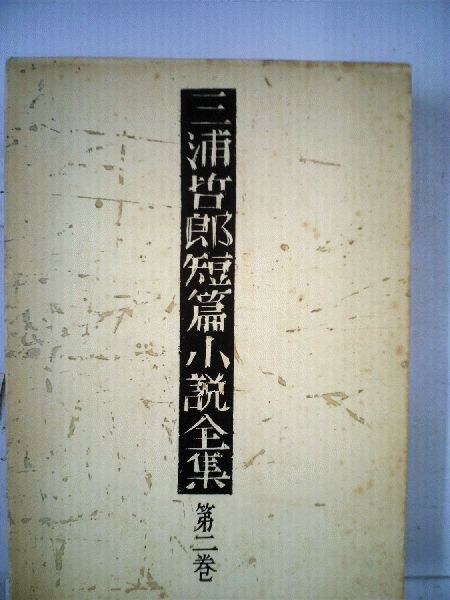 三浦哲郎短篇小説全集
第二巻